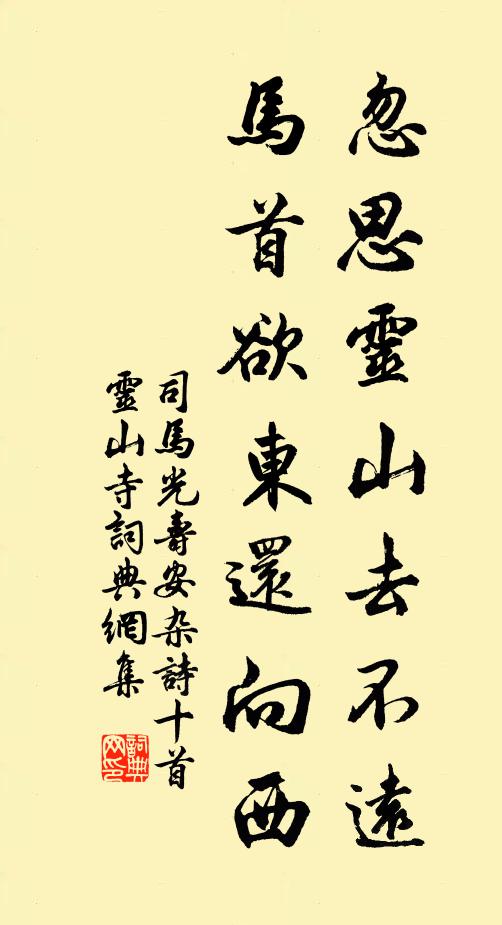 忽思靈山去不遠
馬首欲東還向西
司馬光壽安杂詩十首
靈山寺詞典網集
詞典
网印